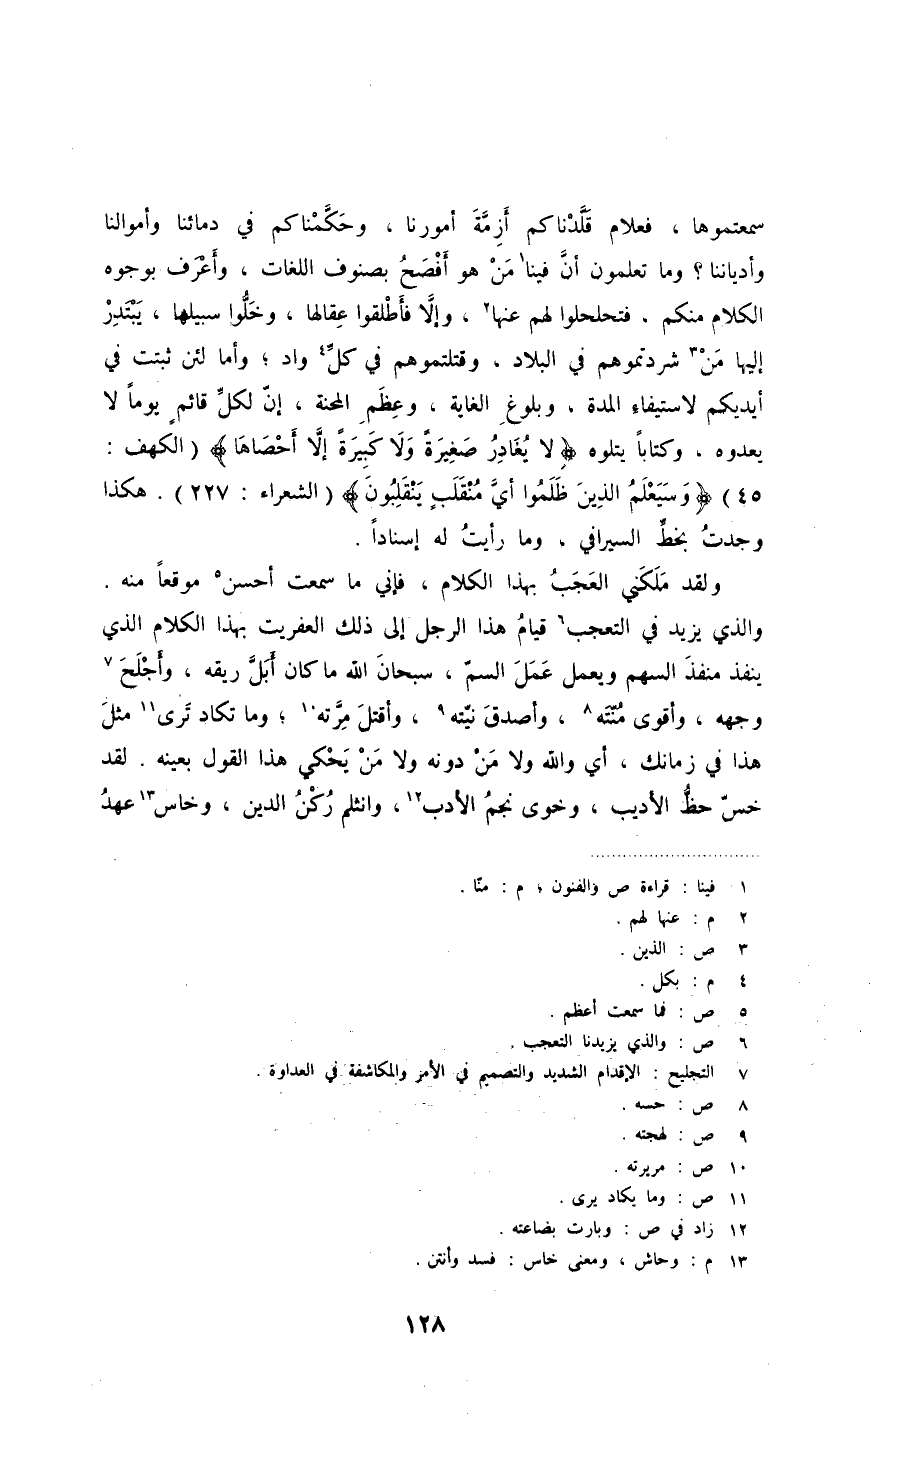 سمعتموها ، فعلام قَلَّدْناكم أَزِمَّةَ أمورنا ، وحَكَّمْناكم في دمائنا وأموالنا
وأدياننا ؟ وما تعلمون أنَّ فينا١ مَنْ هو أَفْصَحُ بصنوف اللغات ، وأَعْرَف بوجوه
الكلام منكم . فتحلحلوا لهم عنها٢ ، وإلَّا فأَطْلقوا عِقالها ، وخَلُّوا سبيلها ، يَبْتَدِرْ
إليها مَنْ٣ شردتموهم في البلاد . وقتلتموهم في كلِّ٤ واد ؛ وأما لئن ثبتت في
أيديكم لاستيفاءِ المدة . وبلوغِ الغاية ، وعِظَمِ المحنة ، إنّ لكلِّ قائمٍ يوماً لا
يعدوه ، وكتاباً يتلوه ﴿ لا يُغَادِرُ صَغِيرَةً وَلَا كَبِيرَةً إلَّا أَحْصَاهَا ﴾ ( الكهف :
٤٥ ) ﴿ وَسَيَعْلَمُ الذِينَ ظَلَمُوا أيَّ مُنْقَلَبٍ يَنْقَلِبُونَ ﴾ ( الشعراء : ٢٢٧ ) . هكذا
وجدتُ بخطِّ السيرافي ، وما رأيتُ له إسناداً .
ولقد مَلَكَني العَجَبُ بهذا الكلام ، فإني ما سمعت أحسن٥ موقعاً منه .
والذي يزيد في التعجب٦ قيامُ هذا الرجل إلى ذلك العفريت بهذا الكلام الذي
ينفذ منفذَ السهم ويعمل عَمَلَ السمّ ، سبحانَ الله ما كان أَبَلَّ ريقه ، وأَجْلَحَ٧
وجهه ، وأقوى مُنَّتَه٨ ، وأصدقَ نيّته٩ ، وأقتلَ مِرَّته١٠ ؛ وما تكاد تَرى١١ مثلَ
هذا في زمانك ، أي والله ولا مَنْ دونه ولا مَنْ يَحْكي هذا القول بعينه . لقد
خسّ حظُّ الأديب ، وخوى نجمُ الأدب١٢، وانثلم رُكْنُ الدين ، وخاس١٣ عهدُ
١ فينا : قراءة ص والفنون ؛ م : منّا .
٢ م : عنها لهم .
٣ ص : الذين .
٤ م : بكل .
٥ ص : فما سمعت أعظم .
٦ ص : والذي يزيدنا التعجب .
٧ التجليح : الإقدام الشديد والتصميم في الأمر والمكاشفة في العداوة .
٨ ص : حسه .
٩ ص : لهجته .
١٠ ص : مريرته .
١١ ص : وما يكاد يرى .
١٢ زاد في ص : وبارت بضاعته .
١٣ م : وحاش ، ومعنى خاس : فسد وأنتن .
١٢٨